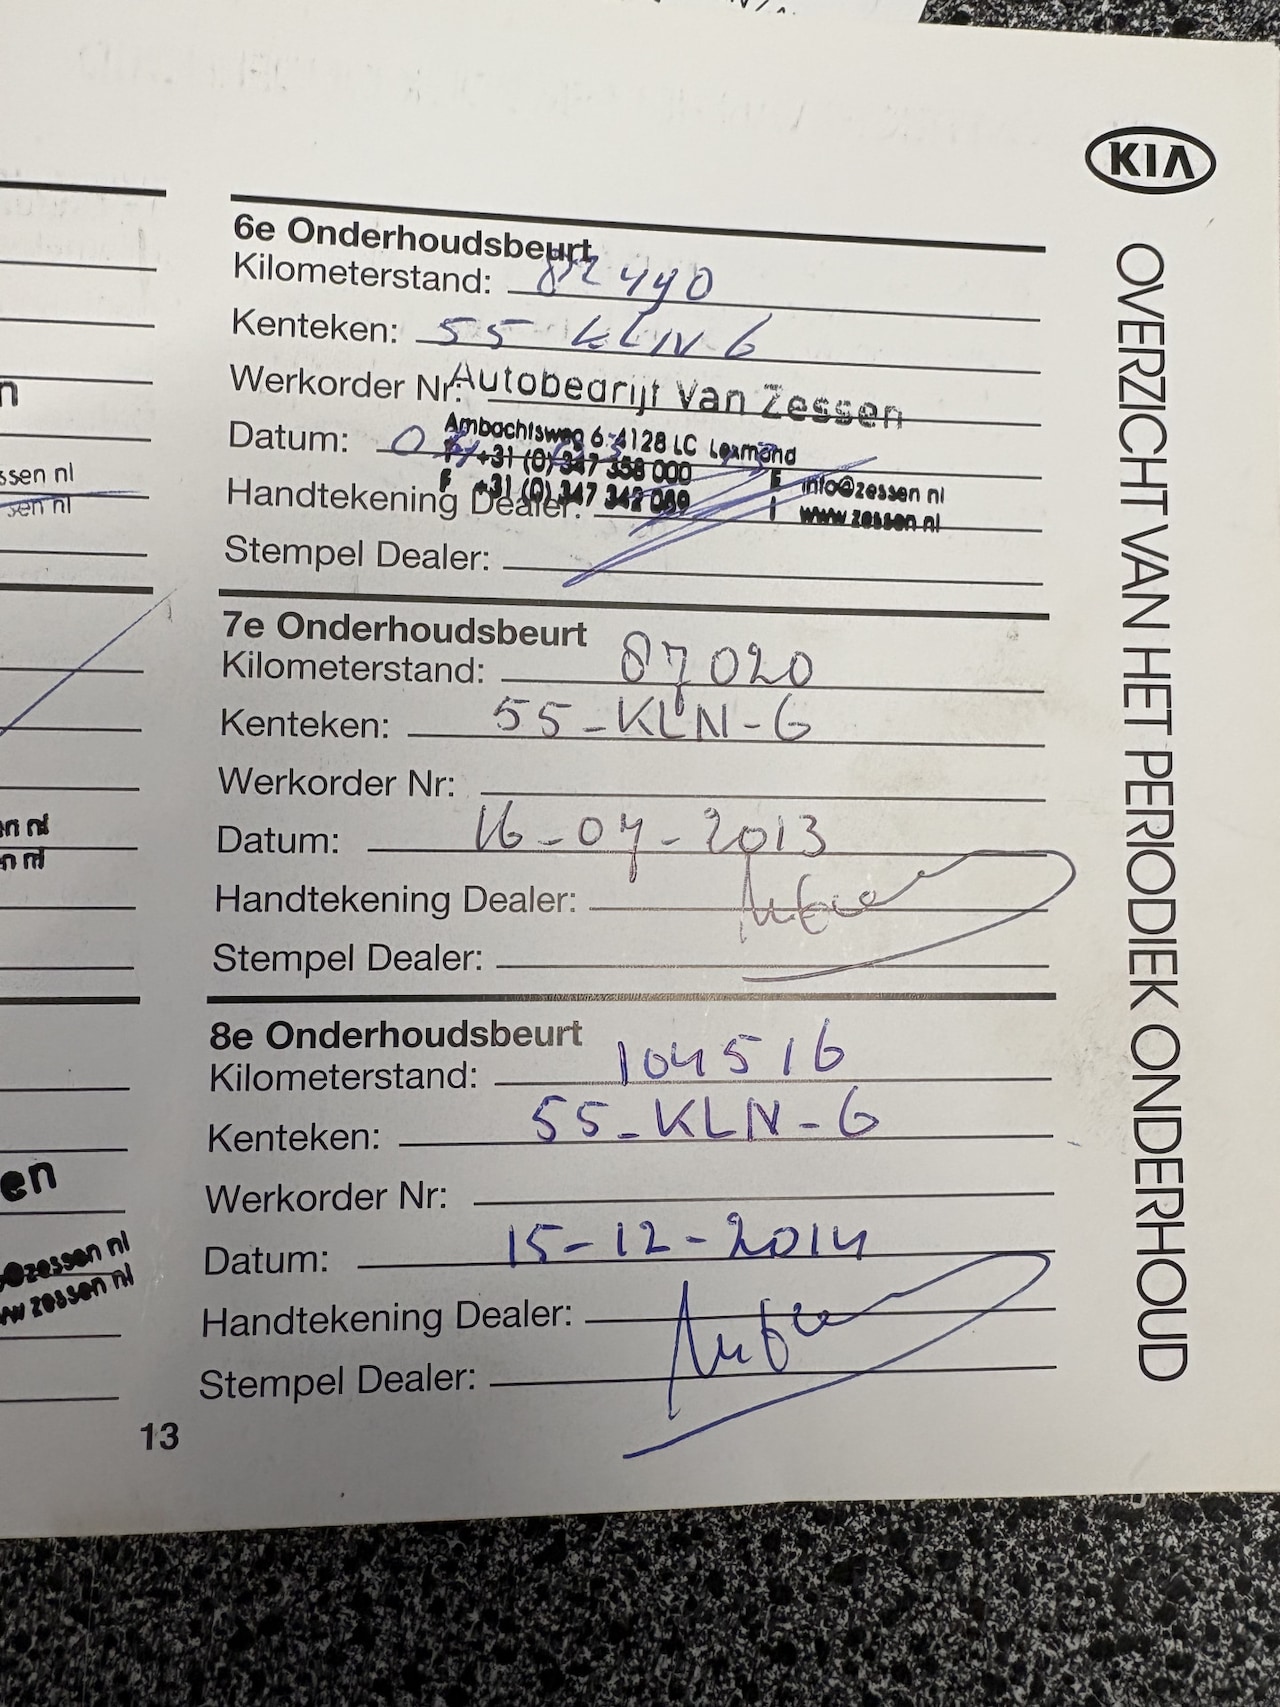 KIA
OVERZICHT VAN HET PERIODIEK ONDERHOUD
6e Onderhoudsbeurt
Kilometerstand: 82440
Kenteken: 55 KLN 6
Werkorder Nr:
Autobedrijf Van Zessen
Ambachtsweg 6-4128 LC Lexmond
Datum:
T +31 (0) 347 358 000
E info@zessen nl
F +31 (0) 347 342 069
I www zessen.nl
Handtekening Dealer:
Stempel Dealer:
7e Onderhoudsbeurt
Kilometerstand: 87020
Kenteken: 55-KLN-6
Werkorder Nr:
Datum: 16-07-2013
Handtekening Dealer:
Stempel Dealer:
8e Onderhoudsbeurt
Kilometerstand: 104516
Kenteken: 55-KLN-6
Werkorder Nr:
Datum: 15-12-2014
Handtekening Dealer:
Stempel Dealer:
13